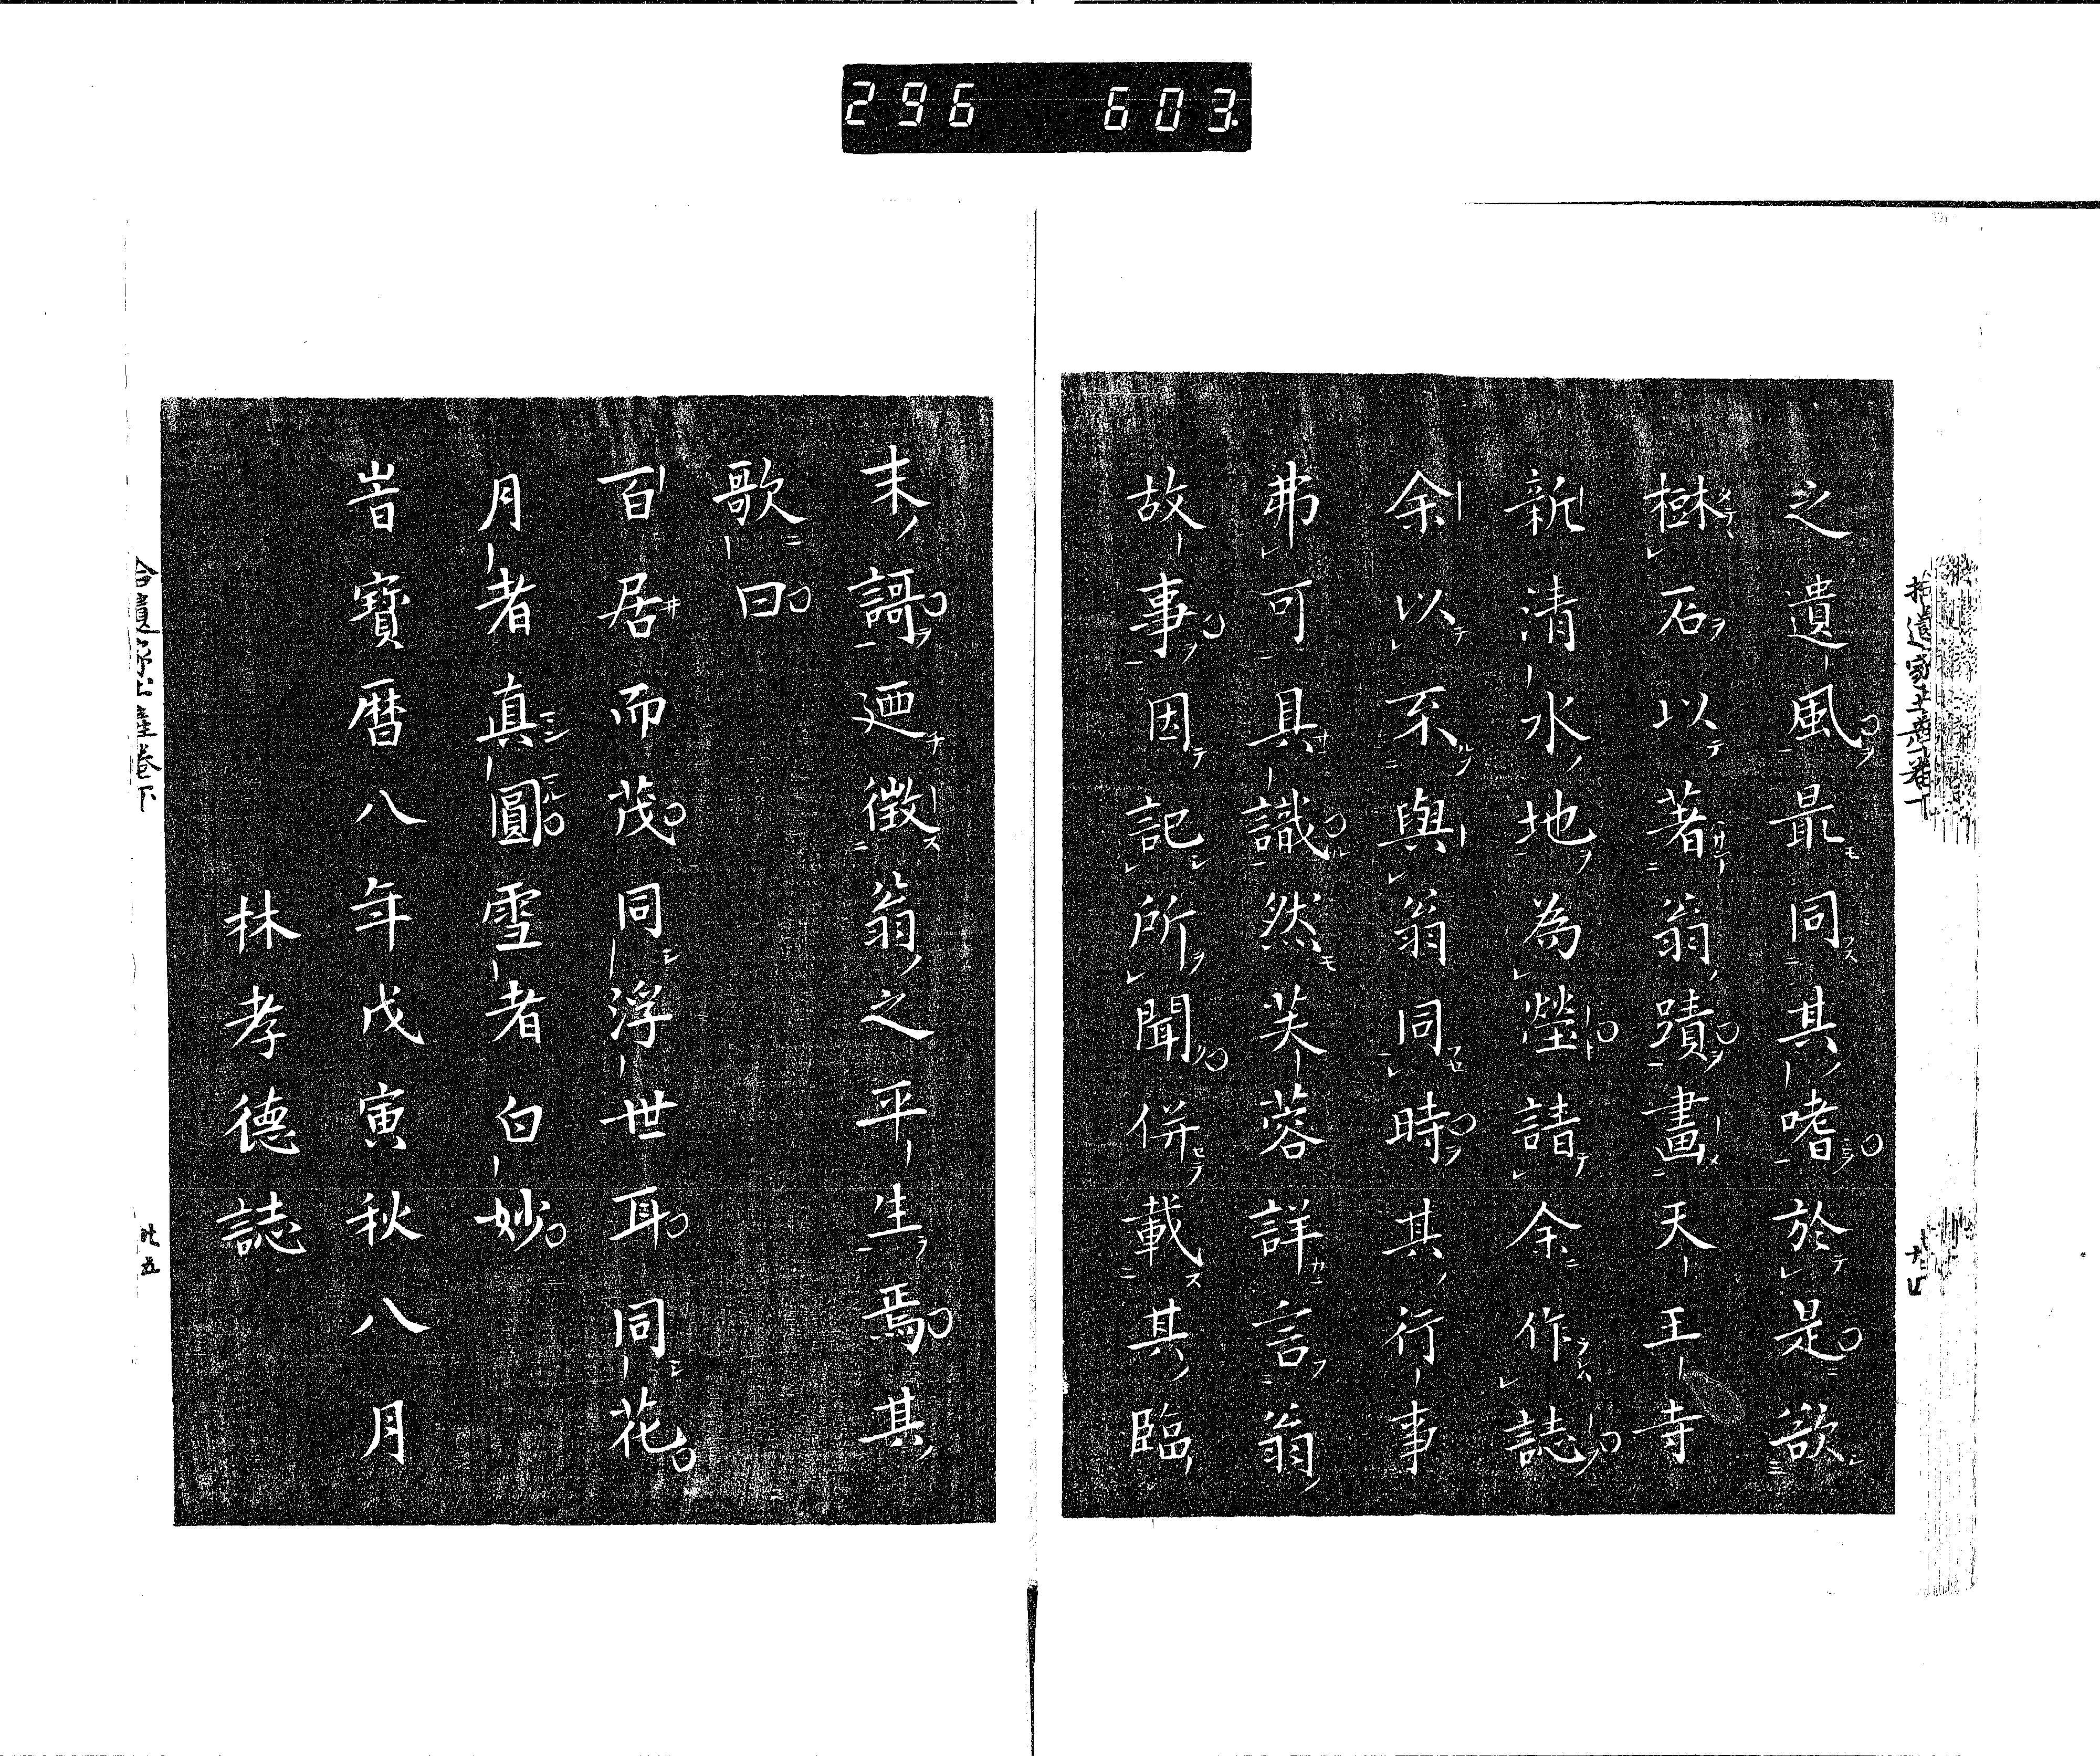 296 603.
之遺風最同其嗜於是欲
樹石以著翁蹟畫天王寺
新清水地為塋請余作誌
余以不與翁同時其行事
弗可具識然芙蓉詳言翁
故事因記所聞併載其臨
末謌廼徵翁之平生焉其
歌曰
百居而茂同浮世耳同花
月者真圓雪者白妙
旹寶暦八年戊寅秋八月
林孝德誌
廿五